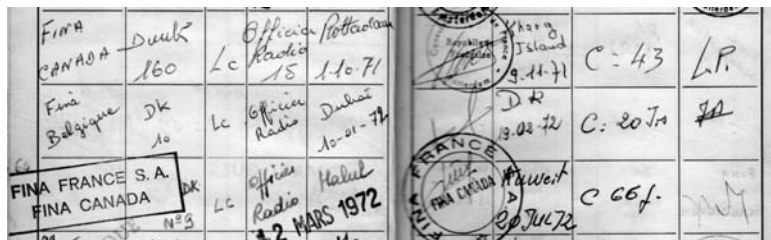 FINA
CANADA
Dunk
160
Lc
Officier
Radio
15
Rotterdam
1.10.71
Kharg
Island
9.11.71
C = 43
L.P.
Fina
Belgique
DK
10
Lc
Officier
Radio
Dubai
10-01-72
DK
19.02.72
C: 20
FINA FRANCE S. A.
FINA CANADA
DK
Nº9
Lc
Officier
Radio
12 MARS 1972
FINA FRANCE S.A.
FINA CANADA
Kuweit
20 Jul 72
C 66 j.